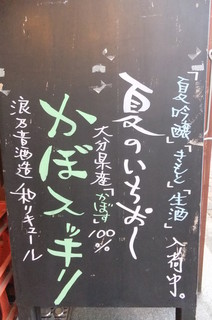 「夏吟醸」「きもと」「生酒」入荷中。
夏のいちおし
大分県産「かぼす」100%
かぼスッキリ
浪乃音酒造 和リキュール